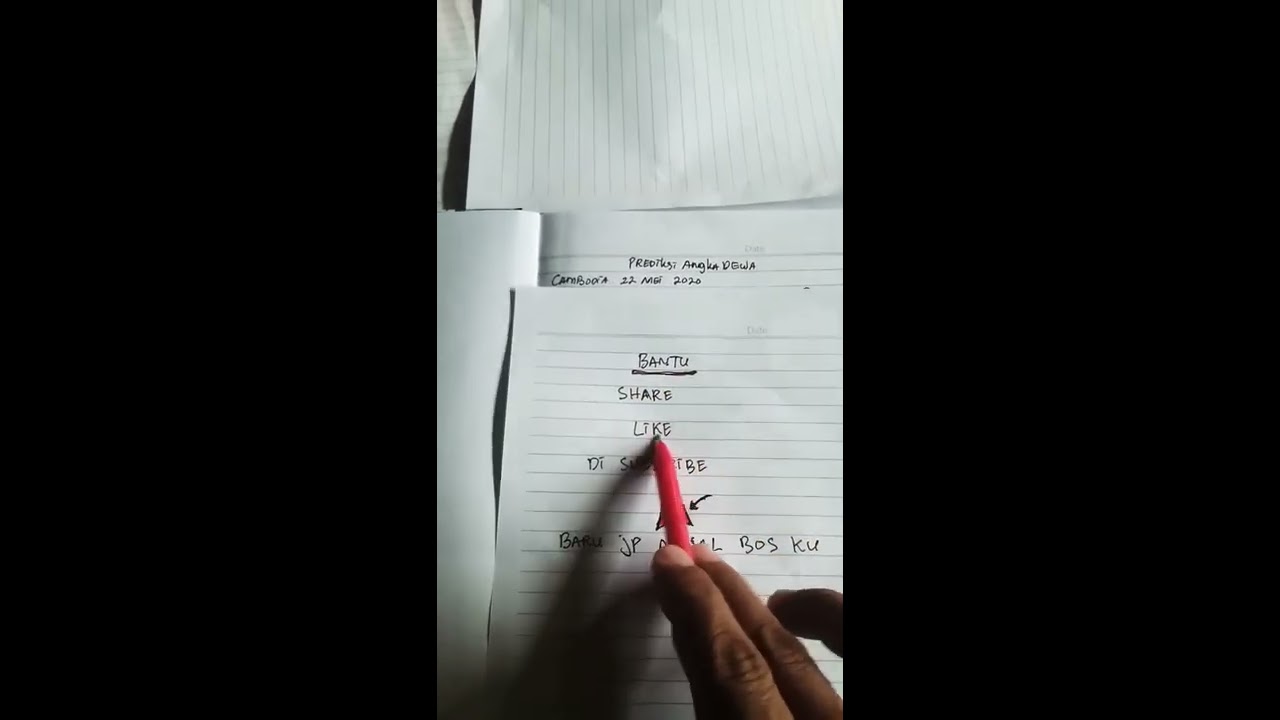 Date
PREDiKSi AngkA DEWA
CAMBODiA 22 MEi 2020
Date
BANTU
SHARE
LiKE
Di
BARU JP BOS KU